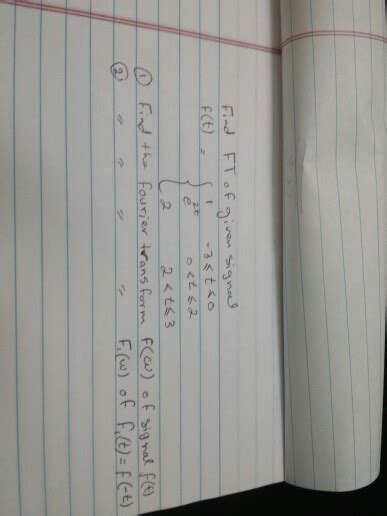 Find FT of given signal
f(t) = { 1 -3 ≤ t ≤ 0
e^2t 0 < t ≤ 2
2 2 < t ≤ 3
① Find the fourier transform F(ω) of signal f(t)
② " " " " F₁(ω) of f₁(t) = f(-t)